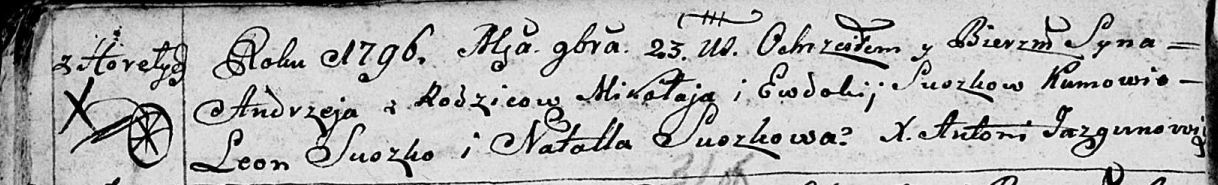 z Horełyg Roku 1796. Msca. 9bra. 23. W. Ochrzciłem y Bierzm Syna —
Andrzeja z Rodzicow Mikołaja i Ewdokij Suszkow Kumowie —
Leon Suszko i Natalla Suszkowa. X. Antoni Jazgunowicz